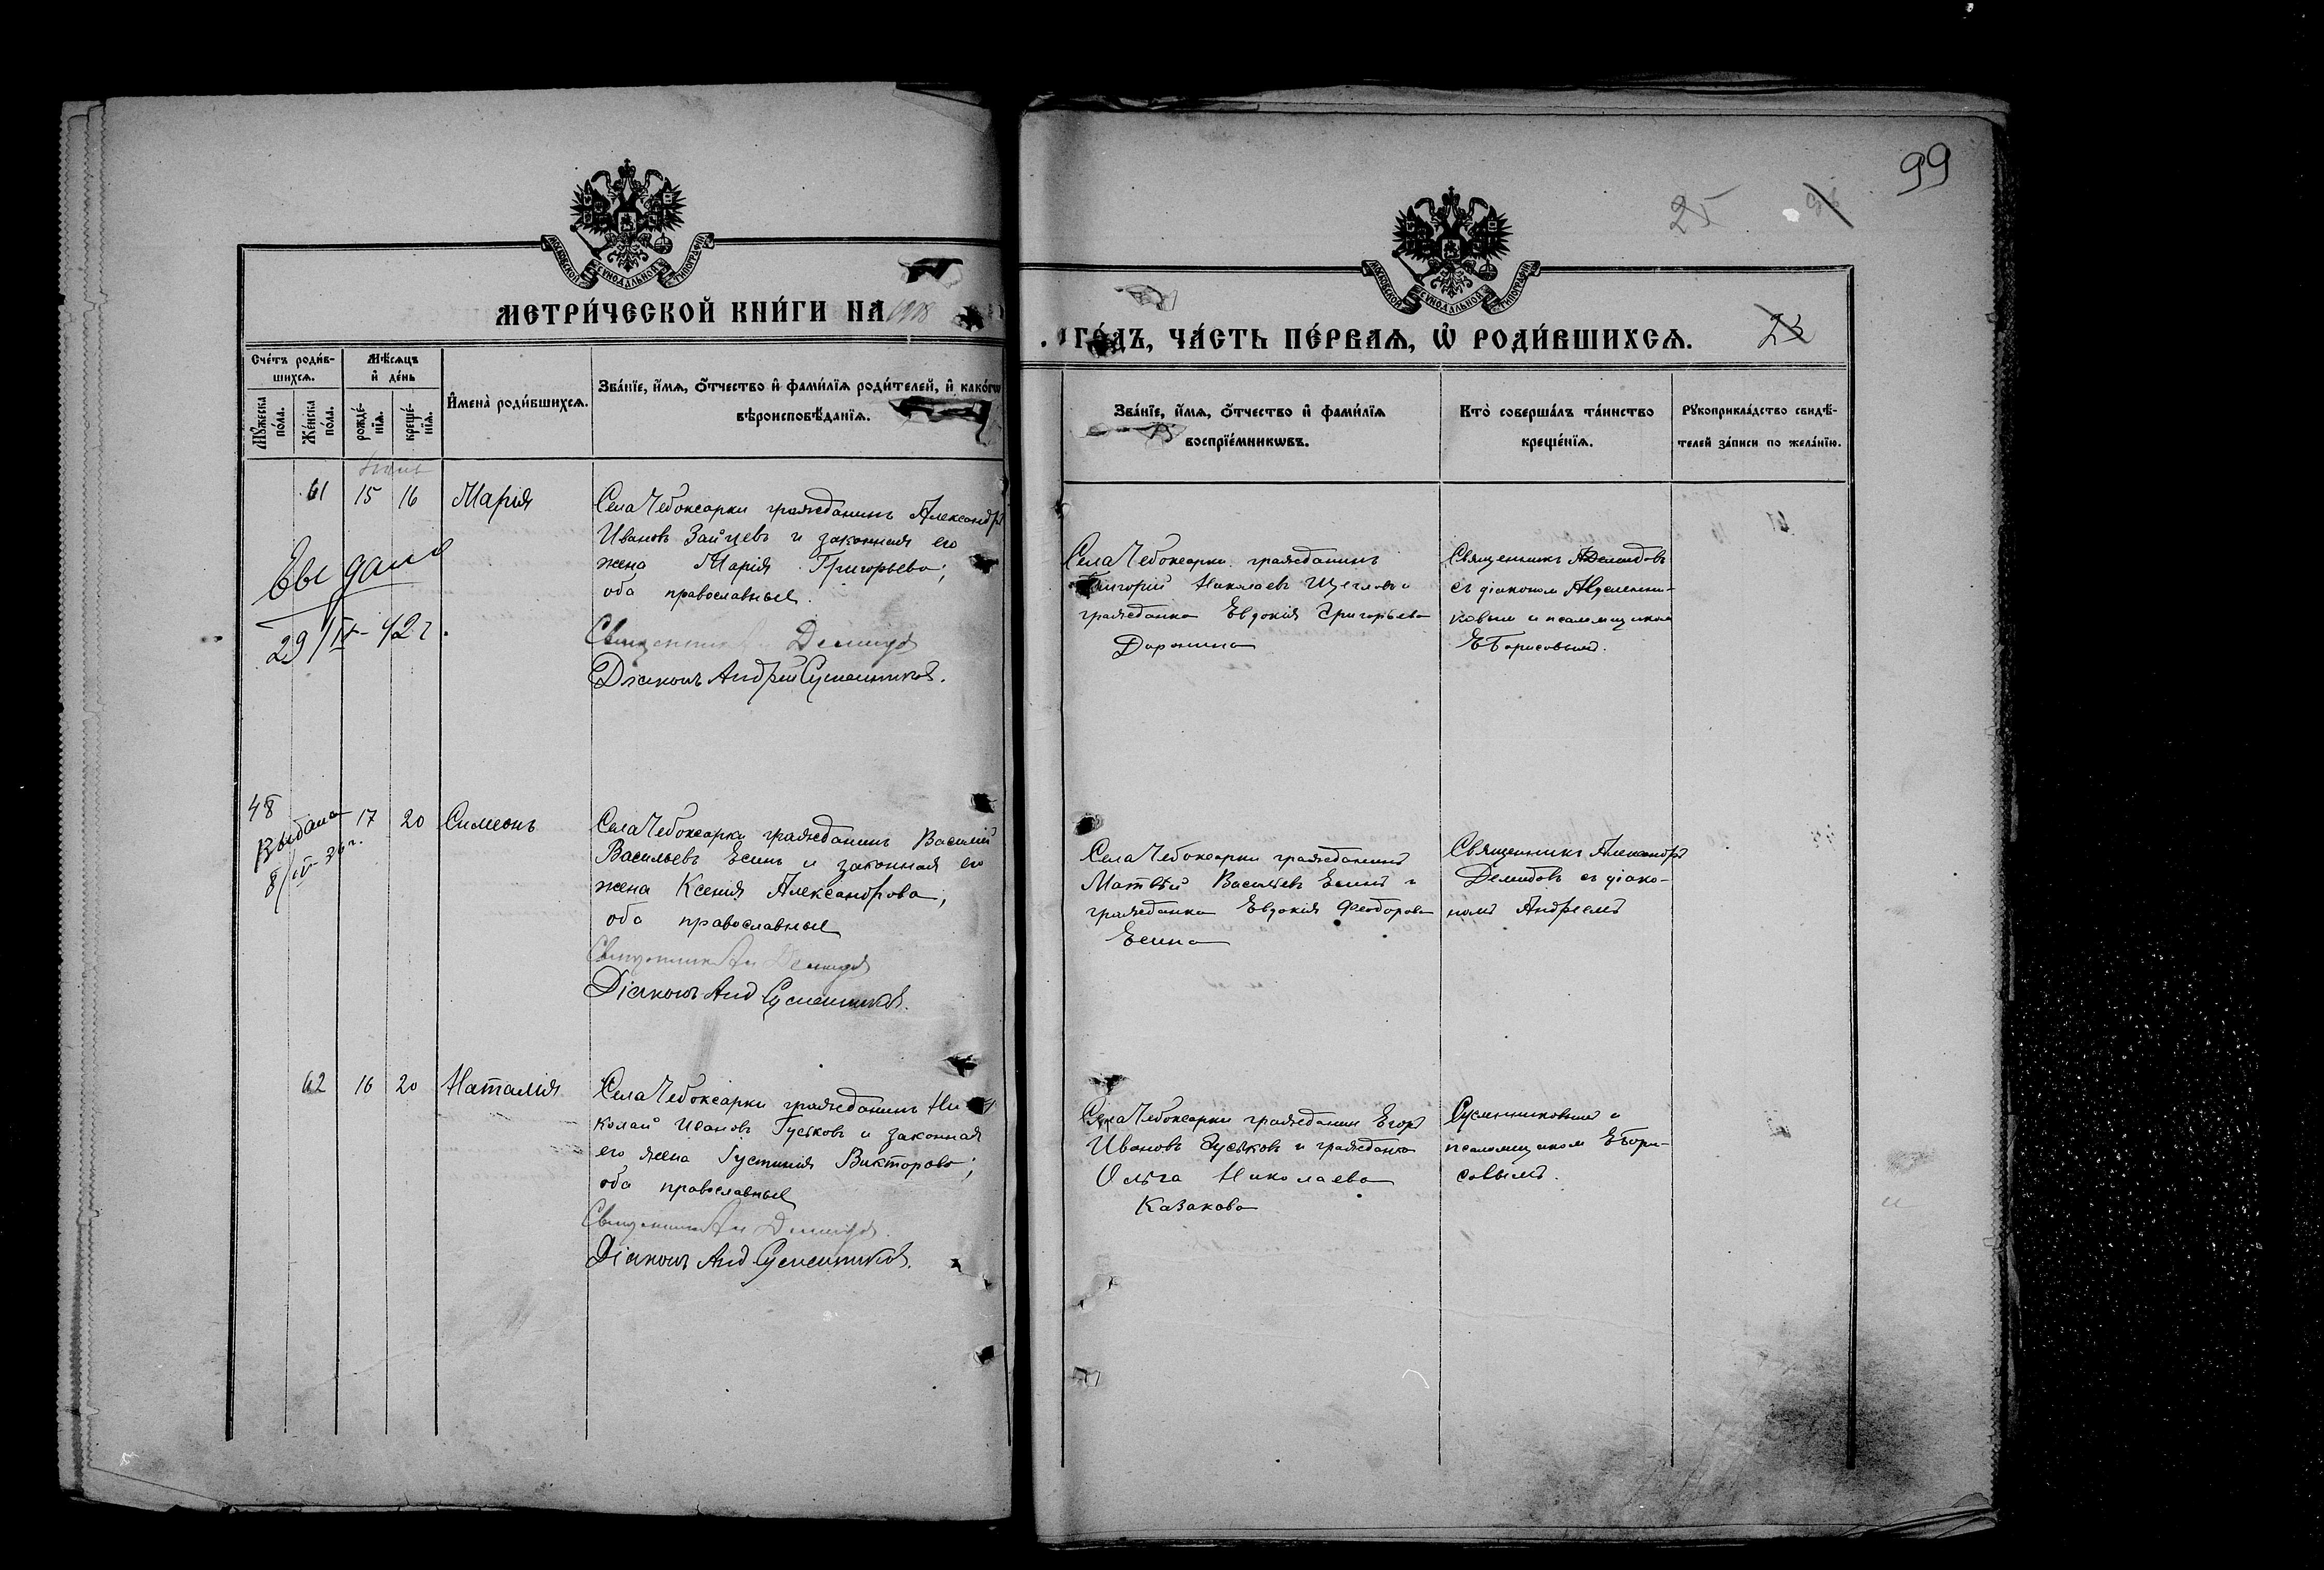 99
25
МОСКОВСКОЙ СУНОДАЛЬНОЙ ТИПОГРАФІИ
МОСКОВСКОЙ СУНОДАЛЬНОЙ ТИПОГРАФІИ
МЕТРИ́ЧЕСКОЙ КНИ́ГИ НА 1918
ГО́ДЪ, ЧА́СТЬ ПЕ́РВАѦ, Ѡ РОДИ́ВШИХСѦ.
Сче́тъ роди́в-
шихсѧ.
Мꙋ́жеска по́ла.
Же́нска по́ла.
Мѣ́сѧцъ
и҆ де́нь
рожде́-
нїѧ.
креще́-
нїѧ.
И҆мена̀ роди́вшихсѧ.
Зва́нїе, и҆́мѧ, ѻ҆́тчество и҆ фами́лїѧ роди́телей, и҆ како́гѡ
вѣроисповѣ́данїѧ.
Зва́нїе, и҆́мѧ, ѻ҆́тчество и҆ фами́лїѧ
воспрїе́мникѡвъ.
Кто̀ соверша́лъ та́инство
креще́нїѧ.
Рꙋкоприкла́дство свидѣ́-
телей за́писи по жела́нїю.
61 15 16 Марія
Села Чебоксарки гражданинъ Александръ
Ивановъ Зайцевъ и законная его
жена Марія Григорьева;
оба православные.
Священникъ Демидовъ
Діаконъ Андрей Сусленниковъ.
Выдана
29/IX-42 г.
Села Чебоксарки гражданинъ
Григорій Николаевъ Щегловъ и
гражданка Евдокія Григорьева
Доронина
Священникъ А Демидовъ
съ діакономъ
ковым и псаломщиком
Е Борисовымъ.
48 17 20 Симеонъ
Выдана
8/IV-
Села Чебоксарки гражданинъ Василій
Васильевъ Есинъ и законная его
жена Ксенія Александрова;
оба православные
Священникъ Ал Демидовъ
Діаконъ Анд Сусленниковъ.
Села Чебоксарки гражданинъ
Матвѣй Васильевъ Есинъ и
гражданка Евдокія Феодорова
Есина
Священникъ Александръ
Демидовъ съ діако-
номъ Андреемъ
62 16 20 Наталія
Села Чебоксарки гражданинъ Ни
колай Ивановъ Гуськовъ и законная
его жена Густинія Викторова;
оба православные
Священникъ Ал Демидовъ.
Діаконъ Анд Сусленниковъ.
Села Чебоксарки гражданин Егоръ
Ивановъ Гуськовъ и гражданка
Ольга Николаева
Казакова
Сусленниковым и
псаломщиком Е Бори-
совымъ.